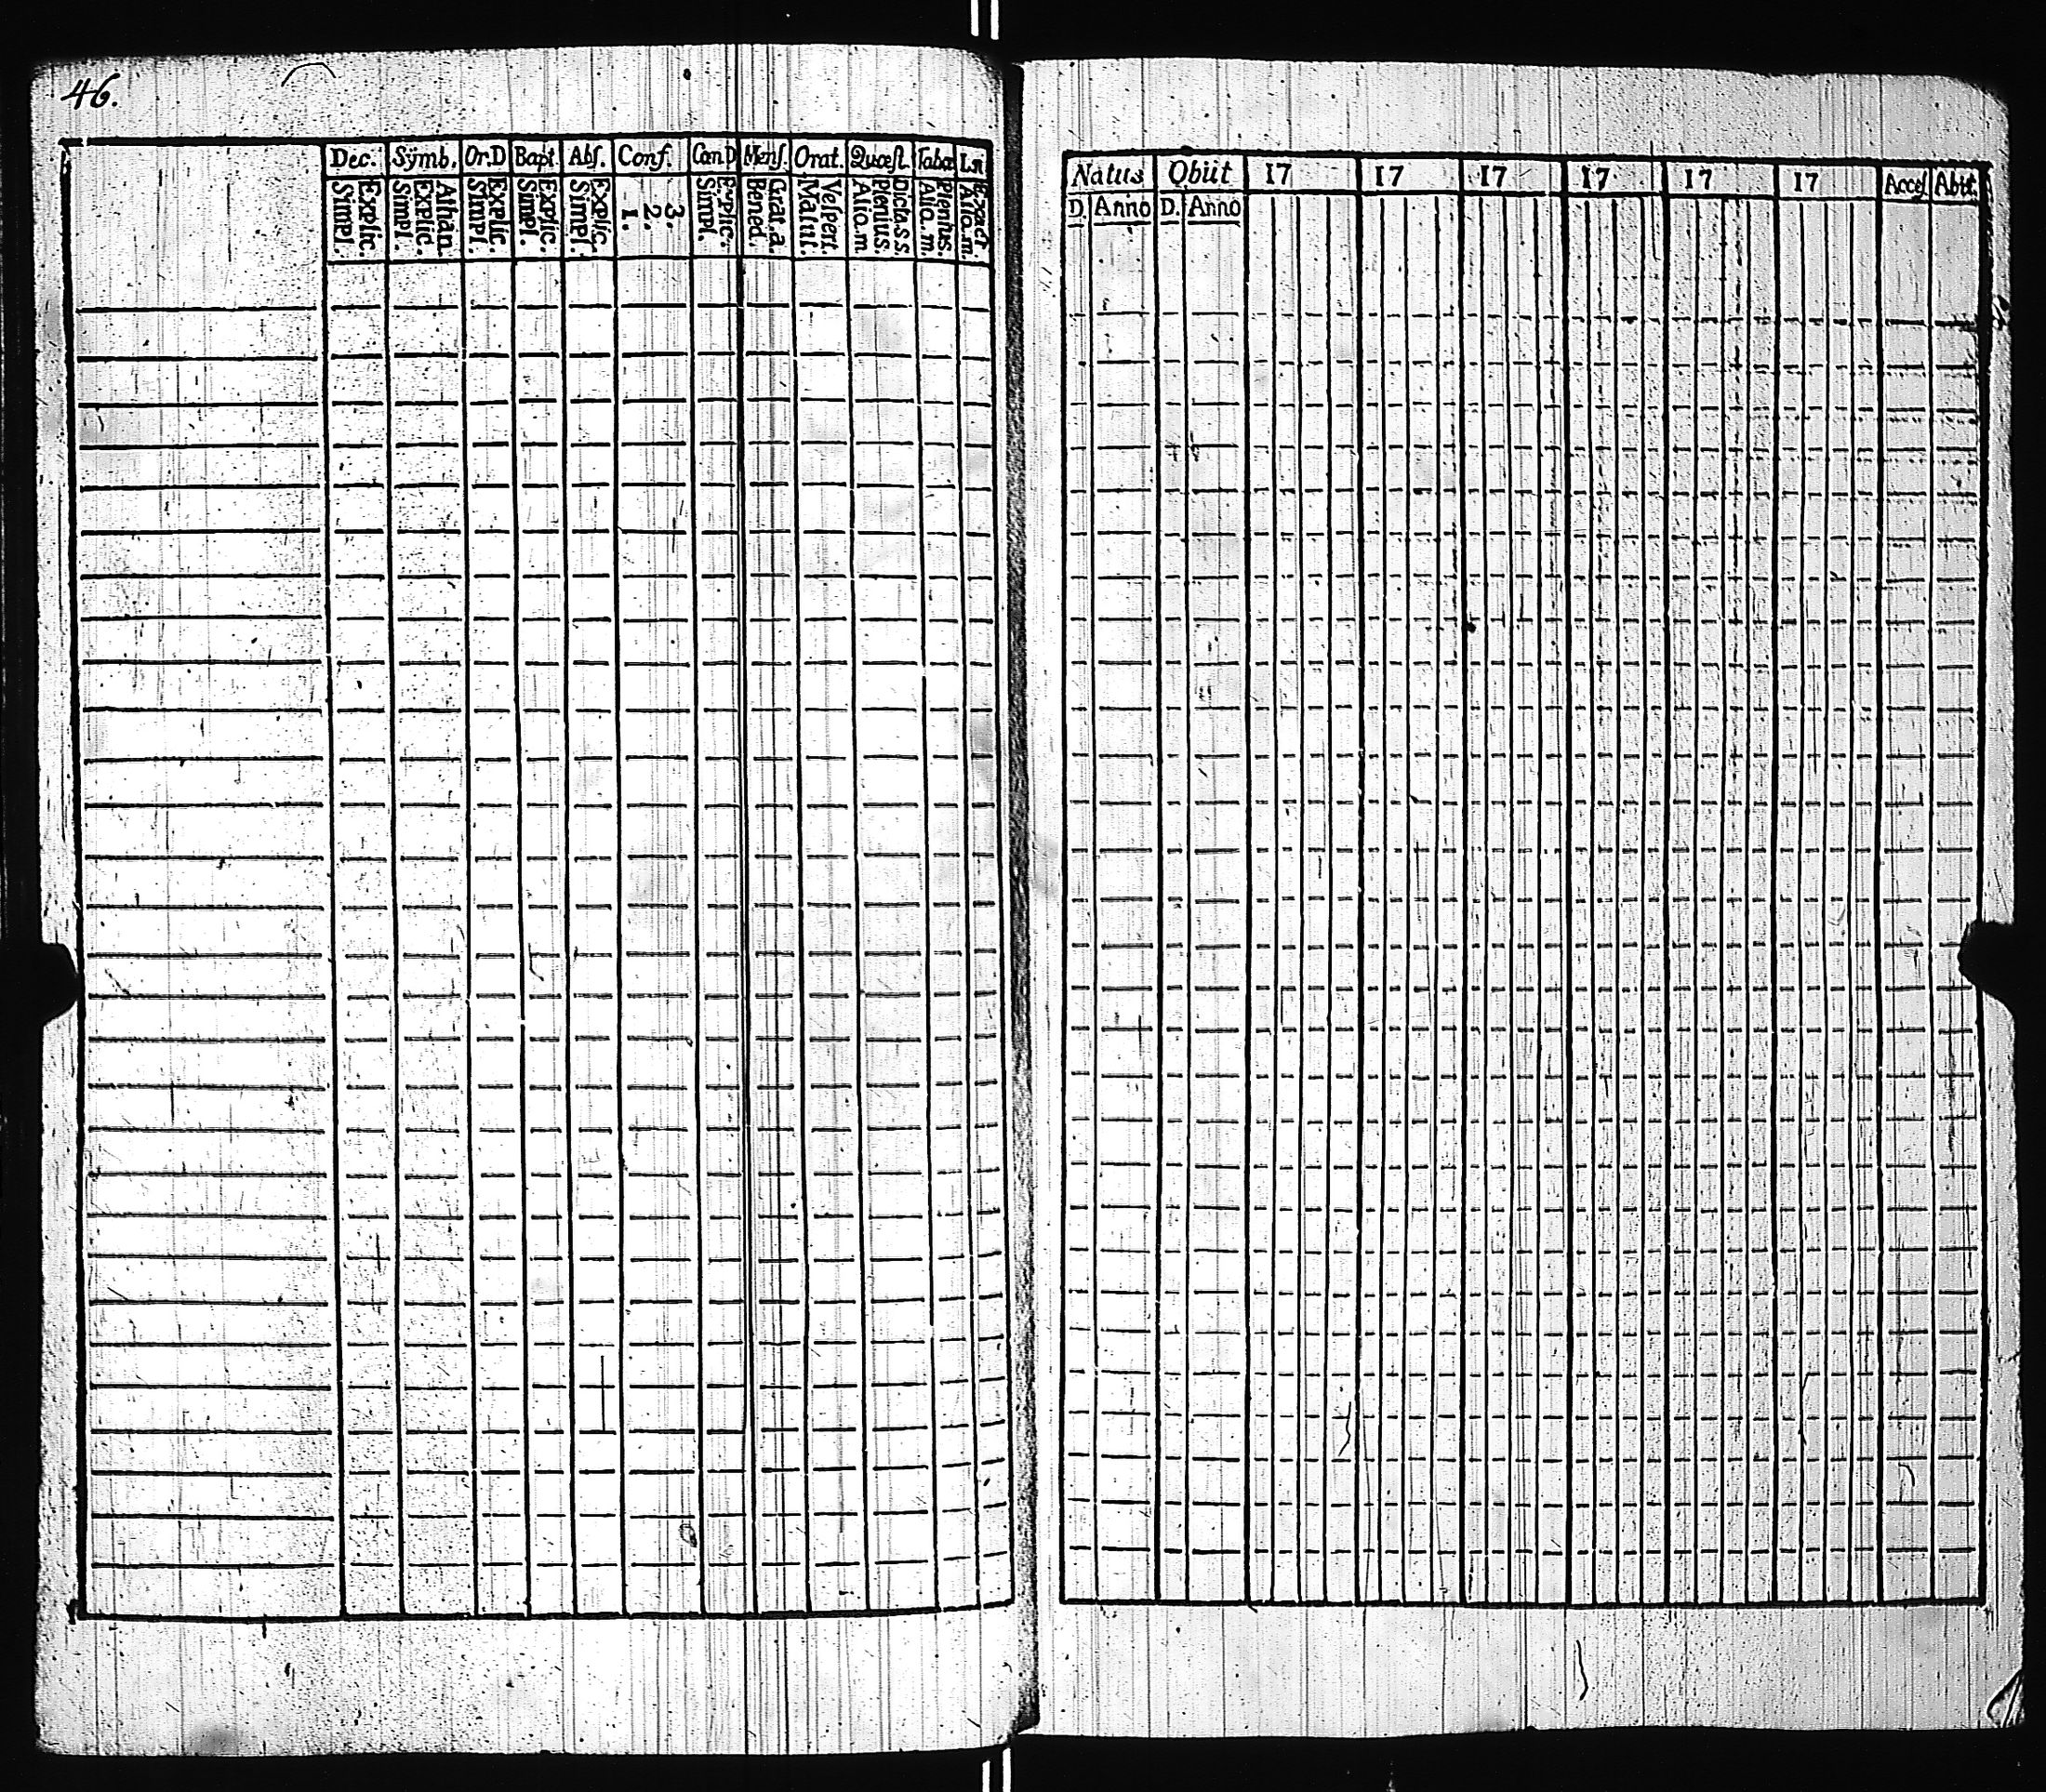 46.
Dec. Sÿmb. Or.D Bapt. Abſ. Conf. Cœn.D Menſ. Orat. Quæſt. Tabæ L.n
Explic. Simpl. Athan. Explic. Simpl. Explic. Simpl. Explic. Simpl. Explic. Simpl. 3. 2. 1. Explic. Simpl. Grat.a. Bened. Veſpert. Matut. Dicta.s.s. Plenius. Alio.m Plenius. Alio.m Exact Alio.m.
Natus Obiit 17 17 17 17 17 17 Acceſ Abit.
D. Anno D. Anno